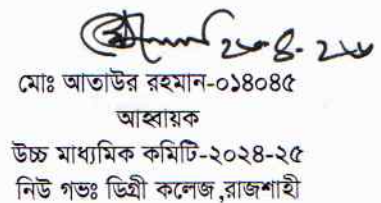 মোঃ আতাউর রহমান-০১৪০৪৫
আহ্বায়ক
উচ্চ মাধ্যমিক কমিটি-২০২৪-২৫
নিউ গভঃ ডিগ্রী কলেজ,রাজশাহী